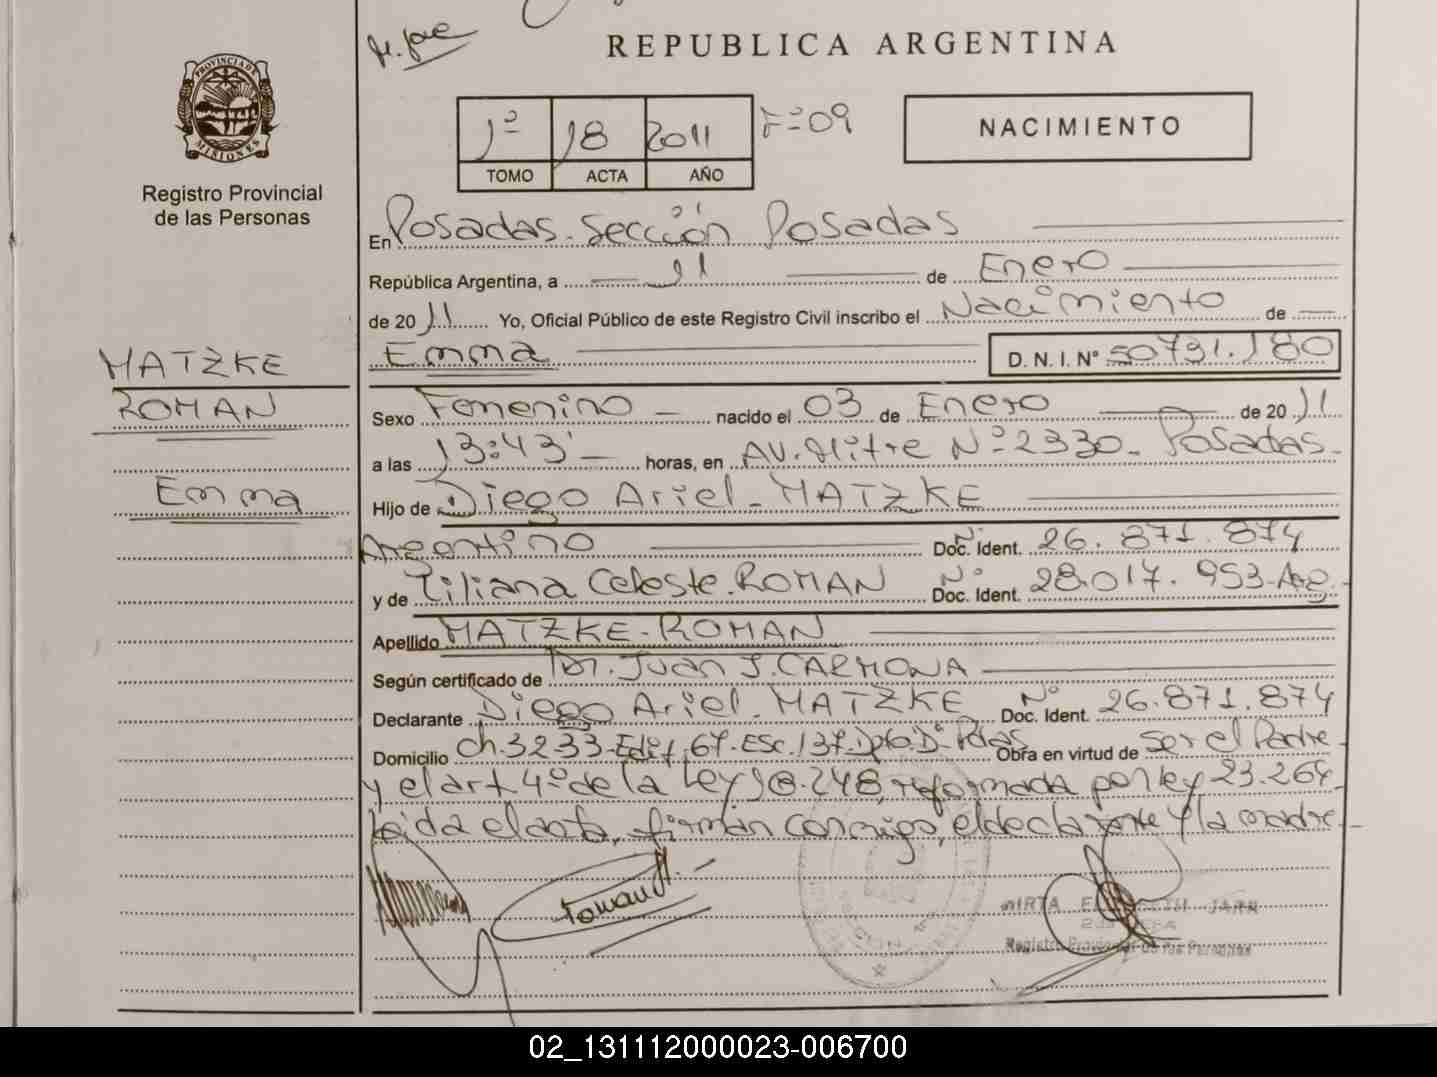 REPUBLICA ARGENTINA
PROVINCIA DE
MISIONES
Registro Provincial
de las Personas
1º 18 2011 Fº 09
TOMO ACTA AÑO
NACIMIENTO
En Posadas. Sección Posadas
República Argentina, a 11 de Enero
de 2011 Yo, Oficial Público de este Registro Civil inscribo el Nacimiento de
Emma D. N. I. Nº 50731.180
MATZKE
ROMAN
Emma
Sexo Femenino nacido el 03 de Enero de 2011
a las 13:43' horas, en AV. Mitre Nº 2330. Posadas.
Hijo de Diego Ariel. MATZKE
Argentino Nº Doc. Ident. 26.871.874
y de Liliana Celeste. ROMAN Nº Doc. Ident. 28.017.953-Arg.
Apellido MATZKE-ROMAN
Según certificado de Dr. Juan J. CARMONA
Declarante Diego Ariel. MATZKE Nº Doc. Ident. 26.871.874
Domicilio ch.32-33-Edif.67-Esc.137.Dpto.D-Pdas Obra en virtud de ser el Padre
y el art 4º de la Ley 18.248, reformada por ley 23.264
Leida el acta, firman conmigo, el declarante y la madre
Roman
MIRTA JARA
Registro Provincial de las Personas
02_131112000023-006700